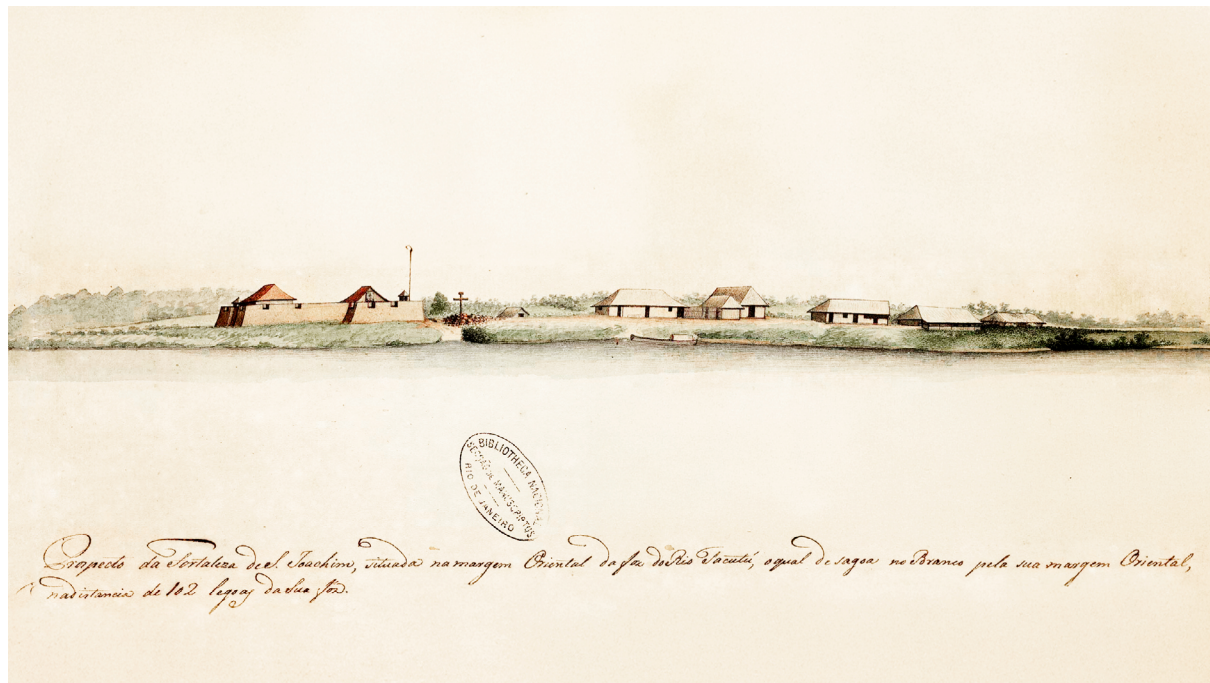 BIBLIOTHECA NACIONAL
SECÇÃO DE MANUSCRIPTOS
RIO DE JANEIRO
Prospecto da Fortaleza de S. Joachim, situada na margem Oriental da foz do Rio Tacutú, o qual desagoa no Branco pela sua margem Oriental,
na distancia de 102 legoas da sua foz.